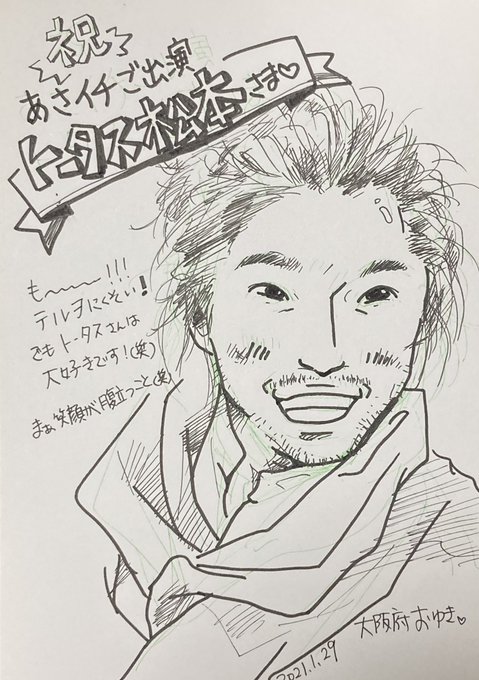 祝
あさイチご出演
トータス松本さま♡
も〜〜〜!!!
テルヲにくそい!
でもトータスさんは
大好きです!(笑)
まぁ笑顔が腹立つこと(笑)
大阪府おゆき♡
2021.1.29